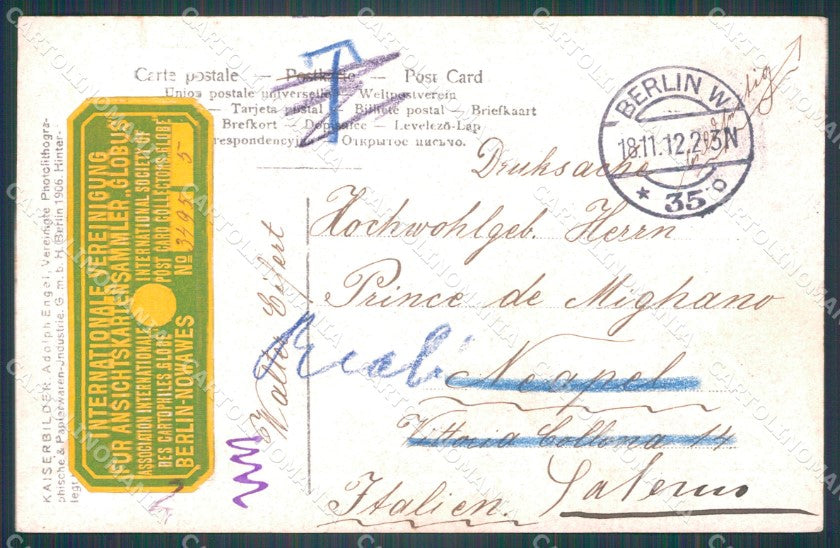 Carte postale — Postkarte — Post Card
Union postale universelle — Weltpostverein
— Tarjeta postal — Billete postal — Briefkaart
Brefkort — Dopisnice — Levelező-Lap
respondencyjna — Открытое письмо.
T
BERLIN W
18.11.12.2-3N
* 35 o
Druksache
Hochwohlgeb. Herrn
Prince de Mighano
Neapel
Vittoria Collona 14
Italien. Salerno
Walter Eifert
INTERNATIONALE VEREINIGUNG
FÜR ANSICHTSKARTENSAMMLER „GLOBUS"
ASSOCIATION INTERNATIONALE
DES CARTOPHILES GLOBE
INTERNATIONAL SOCIETY OF
POST CARD COLLECTORS GLOBE
BERLIN-NOWAWES
No 3495 5
KAISERBILDER Adolph Engel, Vereinigte Photolithogra-
phische & Papierwaren-Jndustrie. G. m. b. H. Berlin 1906. Hinter-
legt.
CARTOLINOMANIA